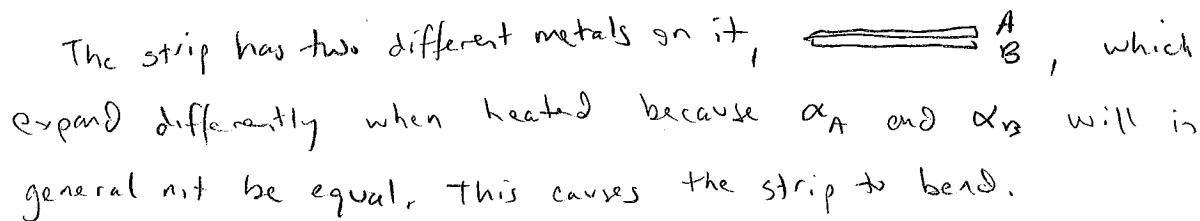 The strip has two different metals on it, A B, which
expand differently when heated because α_A and α_B will in
general not be equal. This causes the strip to bend.